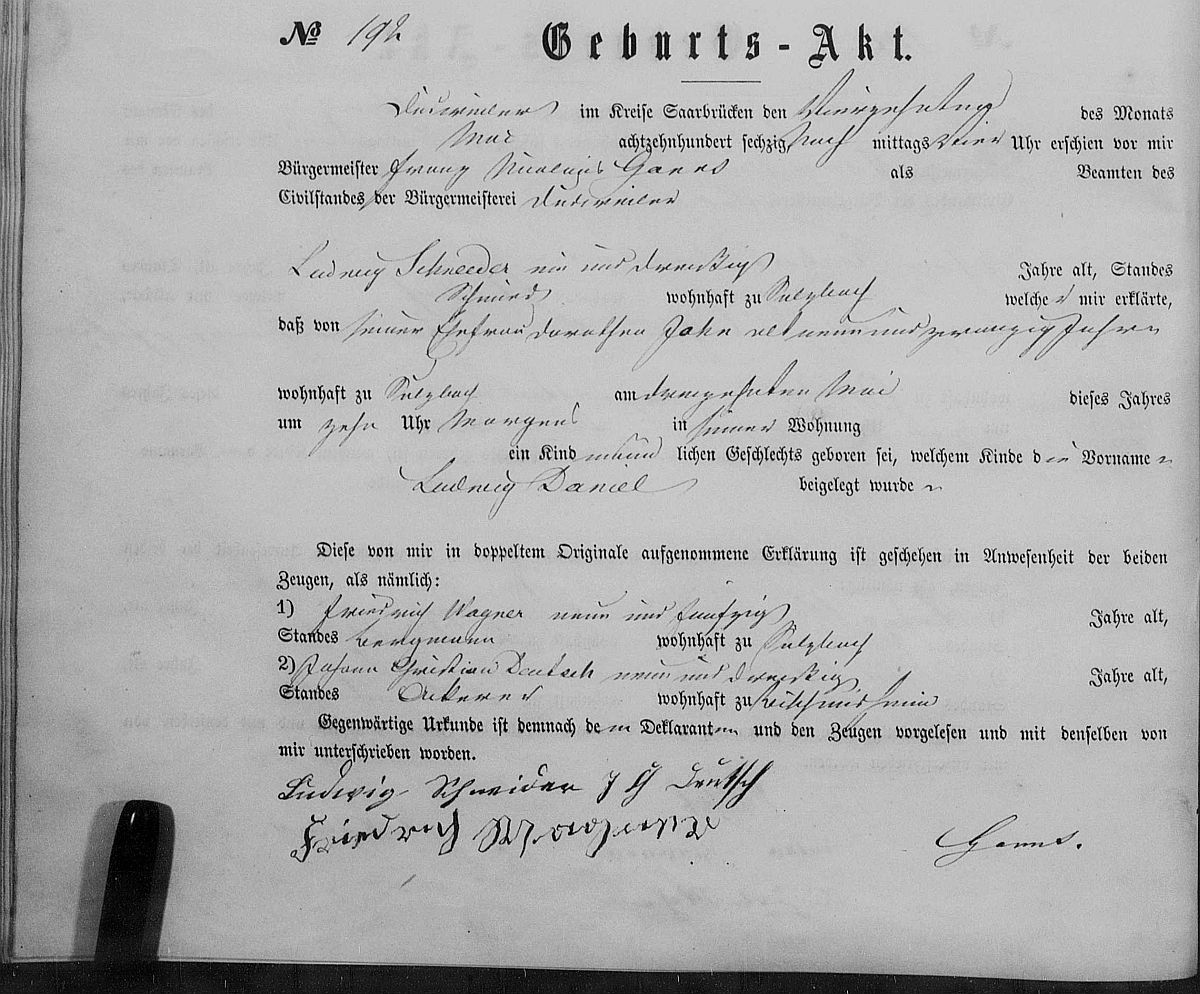 № 192 Geburts-Akt.
Dudweiler im Kreise Saarbrücken den Vierzehnten des Monats
Mai achtzehnhundert sechzig, Nach mittags Vier Uhr erschien vor mir
Bürgermeister Franz Nicolaus als Beamten des
Civilstandes der Bürgermeisterei Dudweiler
Ludwig Schneider ein und dreißig Jahre alt, Standes
Schmied wohnhaft zu Sulzbach welcher mir erklärte,
daß von seiner Ehefrau Dorothea Jahn alt neun und zwanzig Jahre
wohnhaft zu Sulzbach am dreizehnten Mai dieses Jahres
um zehn Uhr Morgens in seiner Wohnung
ein Kind männlichen Geschlechts geboren sei, welchem Kinde die Vornamen
Ludwig Daniel beigelegt wurden
Diese von mir in doppeltem Originale aufgenommene Erklärung ist geschehen in Anwesenheit der beiden
Zeugen, als nämlich:
1) Friedrich Wagner neun und fünfzig Jahre alt,
Standes Bergmann wohnhaft zu Sulzbach
2) Johann Christian Deutsch neun und dreißig Jahre alt,
Standes Ackerer wohnhaft zu
Gegenwärtige Urkunde ist demnach dem Deklaranten und den Zeugen vorgelesen und mit denselben von
mir unterschrieben worden.
Ludwig Schneider J C Deutsch
Friedrich Wagner